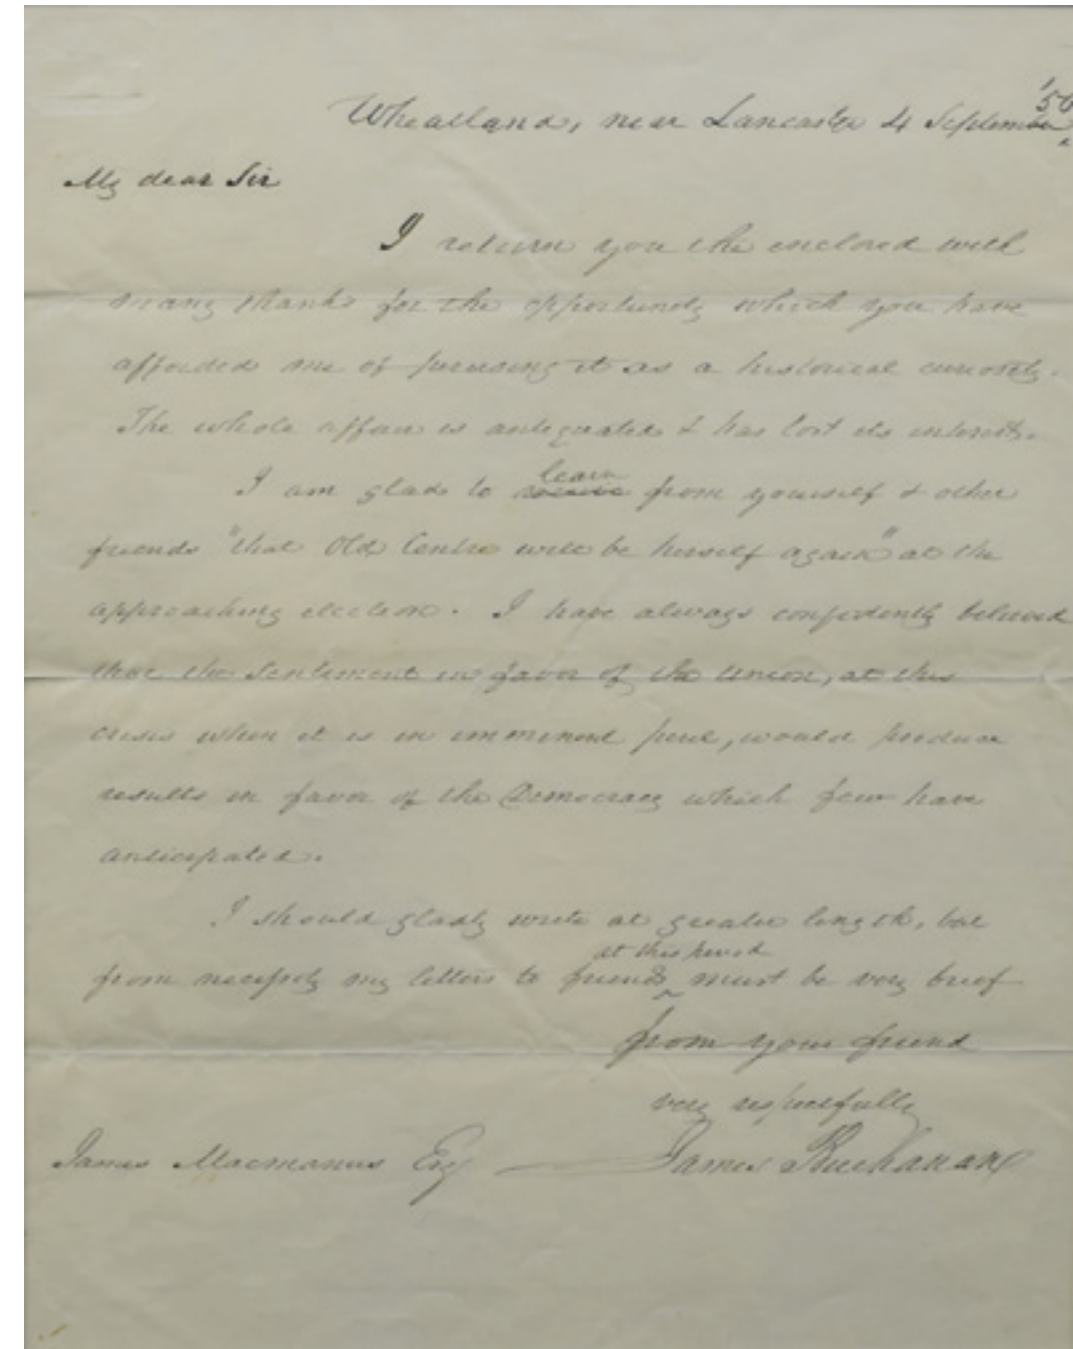 Wheatland, near Lancaster 4 September '56
My dear Sir
I return you the enclosed with
many thanks for the opportunity which you have
afforded me of perusing it as a historical curiosity.
The whole affair is antiquated & has lost its interest.
I am glad to receive learn from yourself & other
friends "that Old Centre will be herself again" at the
approaching election. I have always confidently believed
that the sentiment in favor of the Union, at this
crisis when it is in imminent peril, would produce
results in favor of the Democracy which few have
anticipated.
I should gladly write at greater length, but
from necessity my letters to friends at this period must be very brief
from your friend
very respectfully
James Macmanus Esq James Buchanan